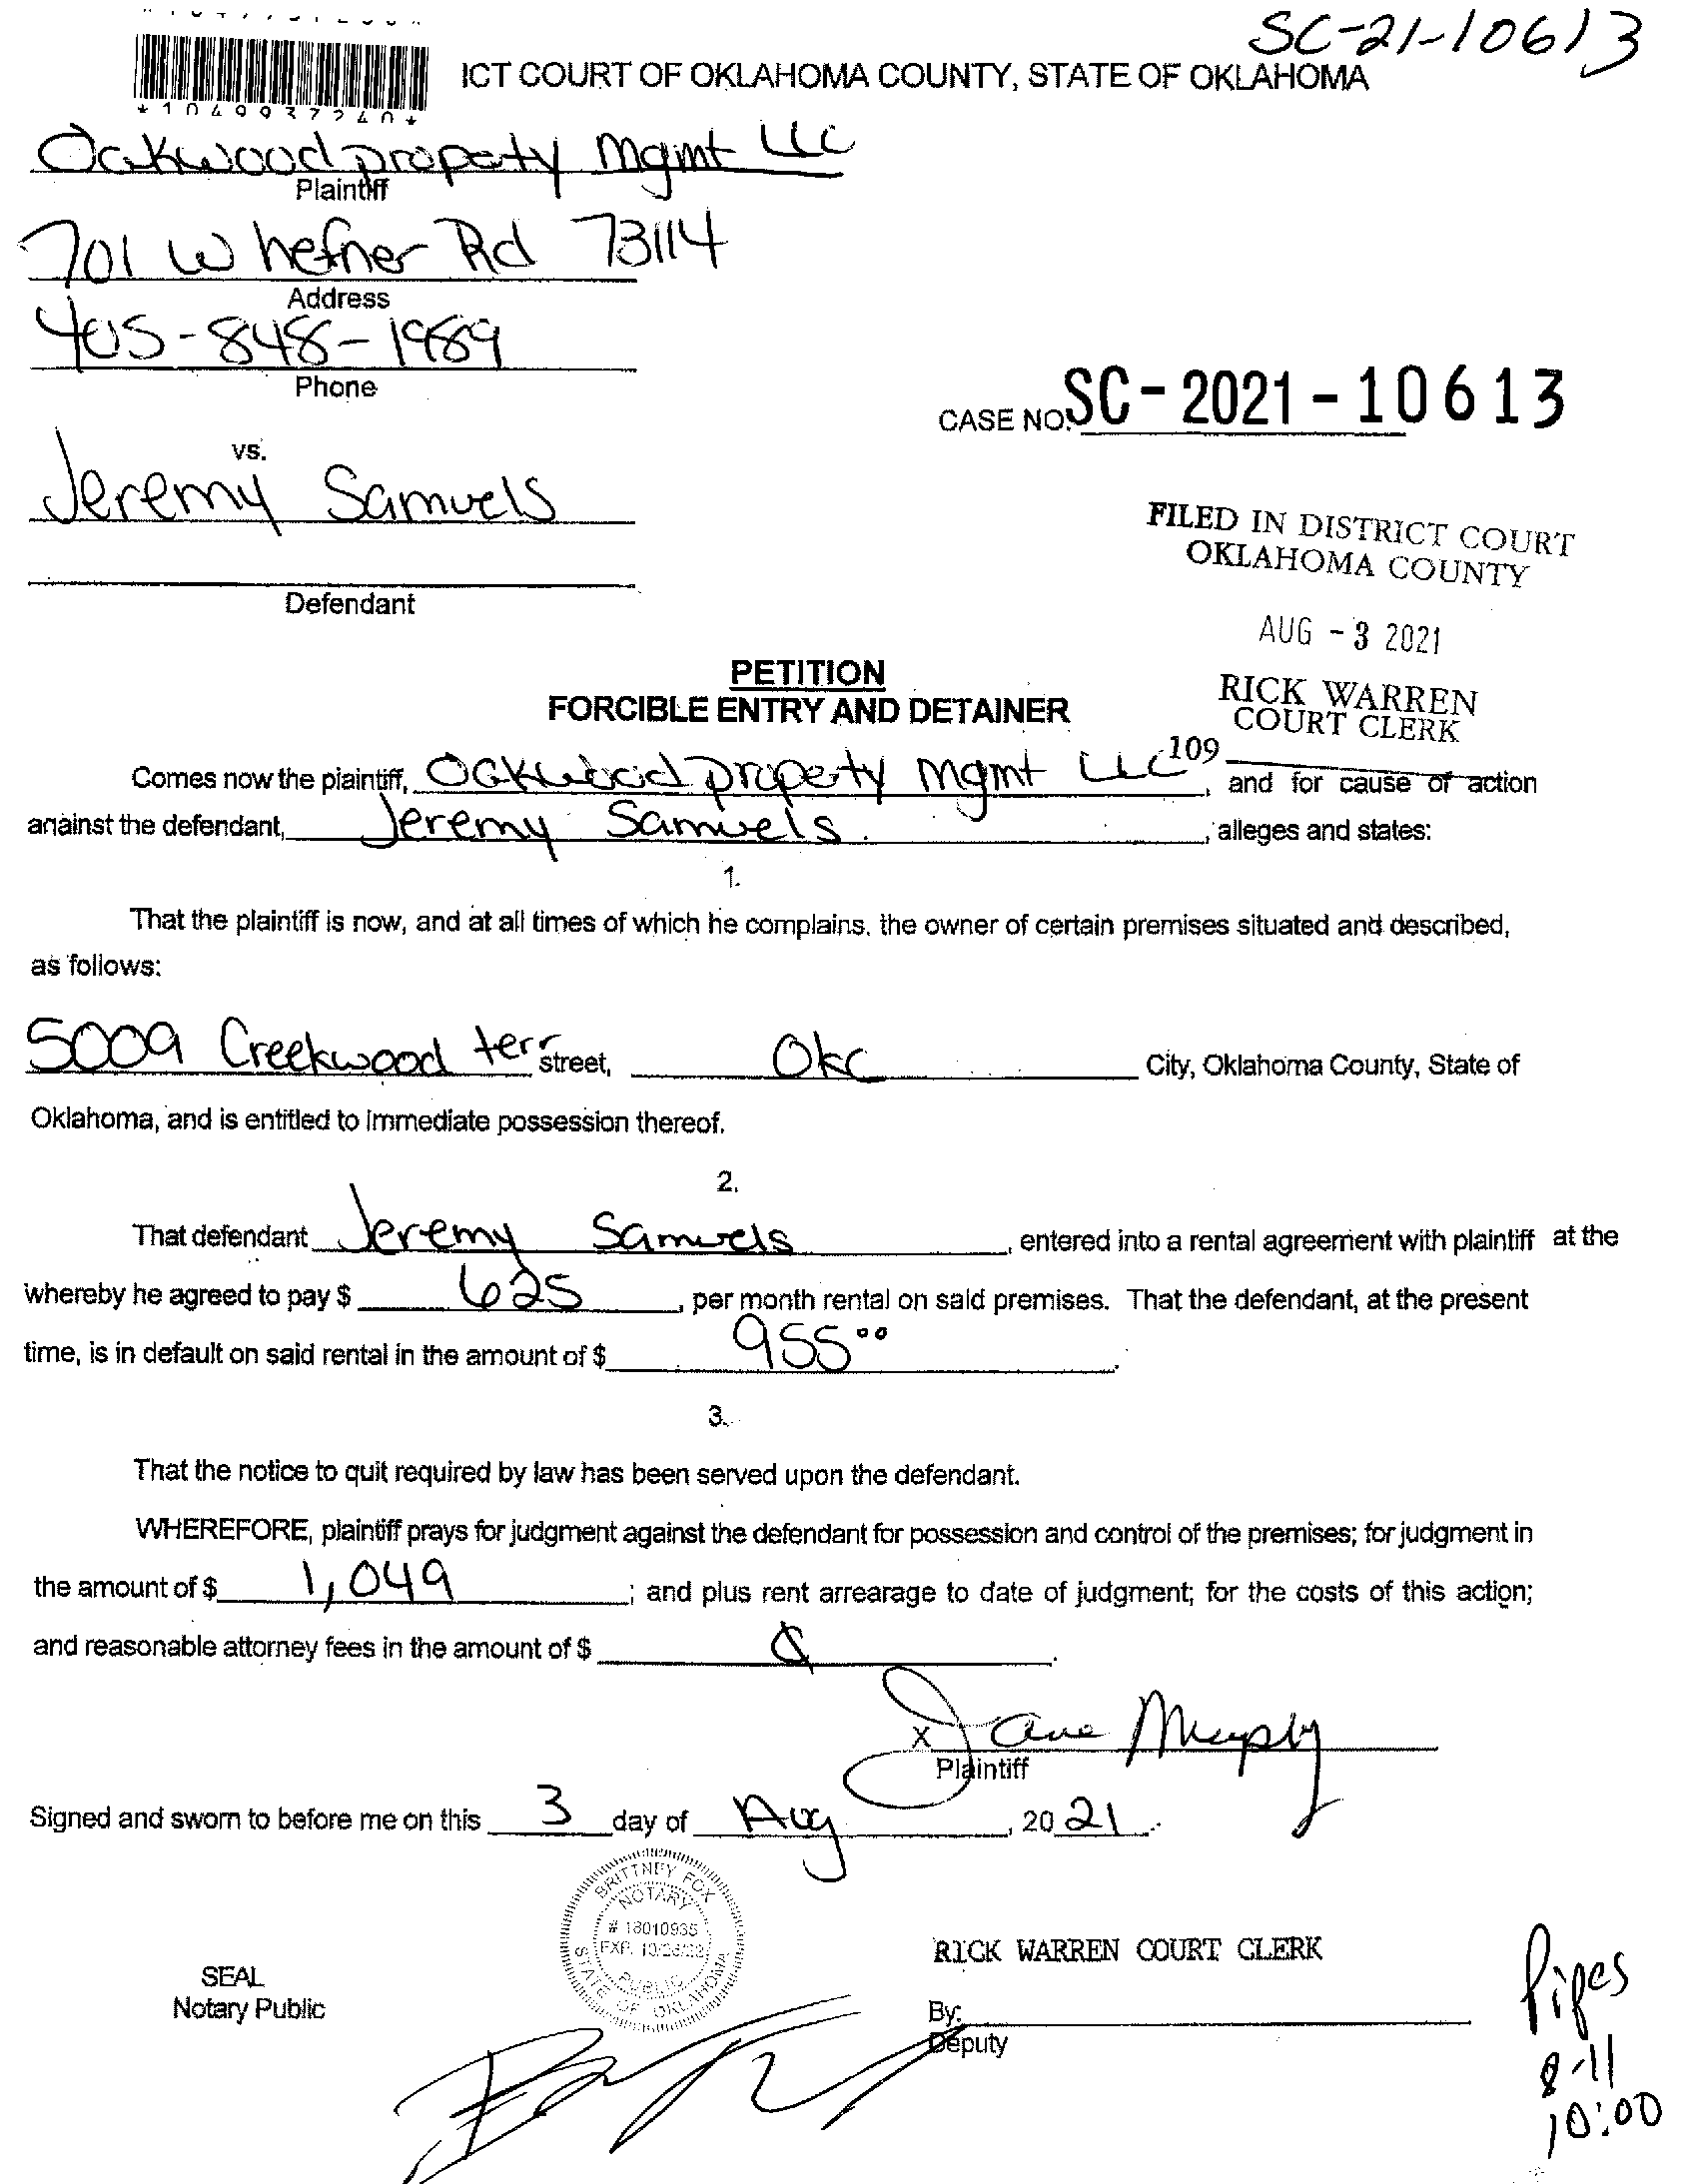 SC-21-10613
ICT COURT OF OKLAHOMA COUNTY, STATE OF OKLAHOMA
*1049937240*
Oakwood property Mgmt LLC
Plaintiff
701 W hefner Rd 73114
Address
405-848-1989
Phone
CASE NO. SC-2021-10613
vs.
Jeremy Samuels
FILED IN DISTRICT COURT
OKLAHOMA COUNTY
Defendant
AUG -3 2021
PETITION
FORCIBLE ENTRY AND DETAINER
RICK WARREN
COURT CLERK
109
Comes now the plaintiff, Oakwood property Mgmt LLC, and for cause of action
against the defendant, Jeremy Samuels, alleges and states:
1.
That the plaintiff is now, and at all times of which he complains, the owner of certain premises situated and described,
as follows:
5009 Creekwood terr street, Okc City, Oklahoma County, State of
Oklahoma, and is entitled to immediate possession thereof.
2.
That defendant Jeremy Samuels, entered into a rental agreement with plaintiff at the
whereby he agreed to pay $ 625, per month rental on said premises. That the defendant, at the present
time, is in default on said rental in the amount of $ 955 00.
3.
That the notice to quit required by law has been served upon the defendant.
WHEREFORE, plaintiff prays for judgment against the defendant for possession and control of the premises; for judgment in
the amount of $ 1,049; and plus rent arrearage to date of judgment; for the costs of this action;
and reasonable attorney fees in the amount of $
X Jane Murphy
Plaintiff
Signed and sworn to before me on this 3 day of Aug, 20 21.
BRITTNEY FOX
NOTARY
# 18010935
EXP.
PUBLIC
STATE OF OKLAHOMA
RICK WARREN COURT CLERK
SEAL
Notary Public
By:
Deputy
Pipes
8-11
10:00